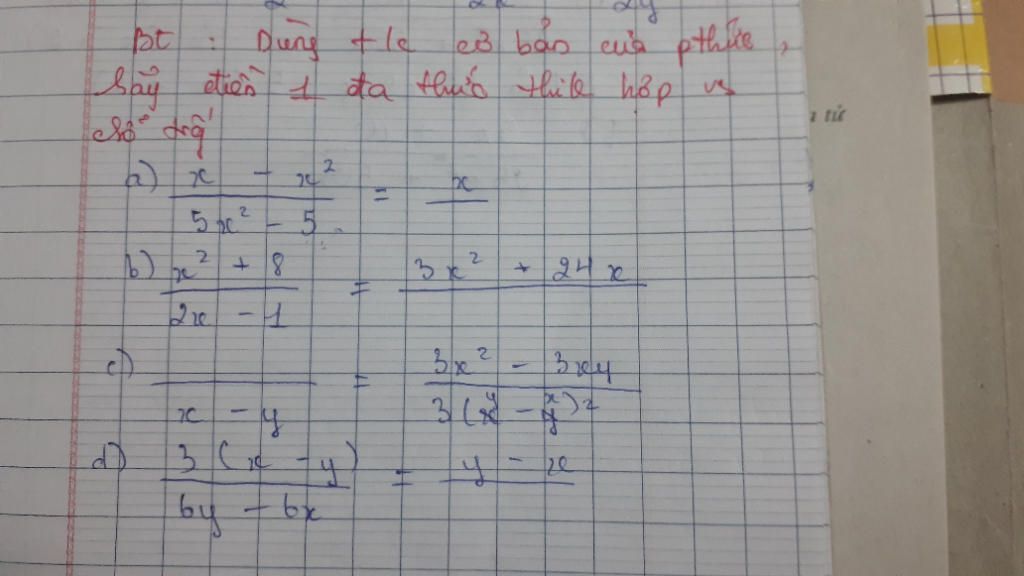 BT : Dùng t/c cơ bản của pthức,
hãy điền 1 đa thức thích hợp vs
chỗ trống
a) x - x² / 5x² - 5 = x /
b) x² + 8 / 2x - 1 = 3x² + 24x /
c) / x - y = 3x² - 3xy / 3(y - x)²
d) 3(x - y) / 6y - 6x = y - x /